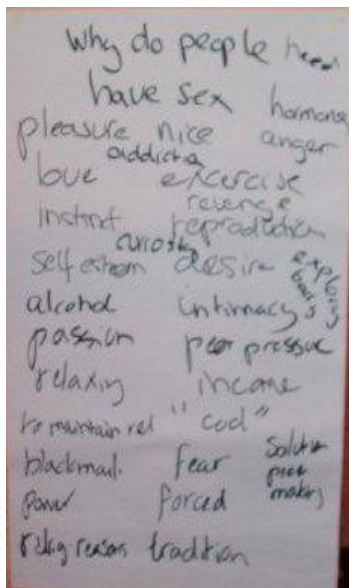 Why do people
have sex hormones
pleasure nice anger
addictio
love excercise
revenge
instinct reproduction
curiosity
self esteem desire
alcohol intimacy
passion peer pressure
relaxing income
to maintain rel "cool"
blackmail. fear
power forced making
relig. reasons tradition